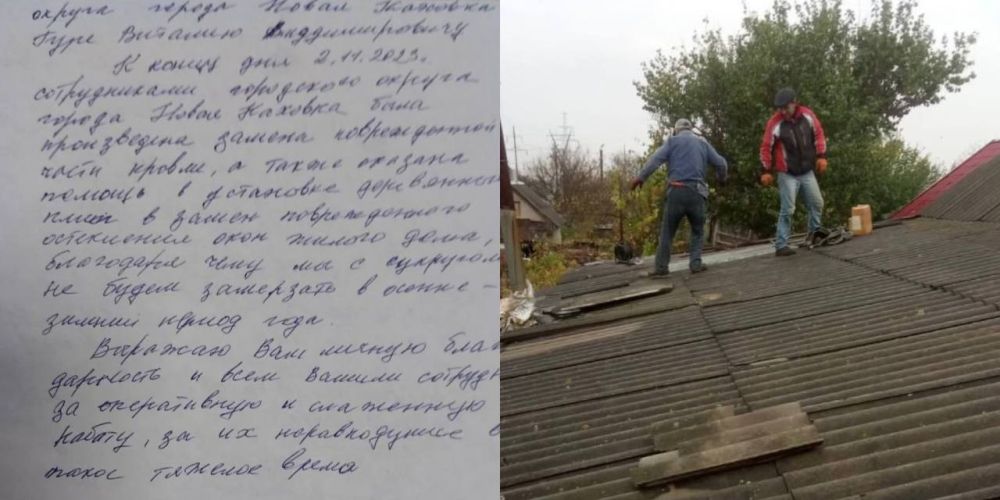 округа города Новая Каховка
Гуре Виталию Владимировичу
К концу дня 2.11.2023г.
сотрудниками городского округа
города Новая Каховка была
произведена замена поврежденной
части кровли, а также оказана
помощь в установке деревянных
плит в замен поврежденного
остекления окон жилого дома,
благодаря чему мы с супругом
не будем замерзать в осенне-
зимний период года.
Выражаю Вам личную благо
дарность и всем Вашим сотрудн
за оперативную и слаженную
работу, за их неравнодушие в
такое тяжелое время